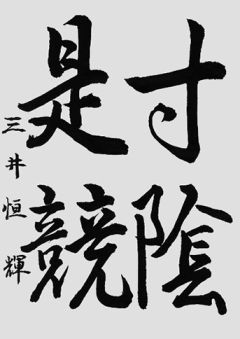 寸陰
是競
三井恒輝